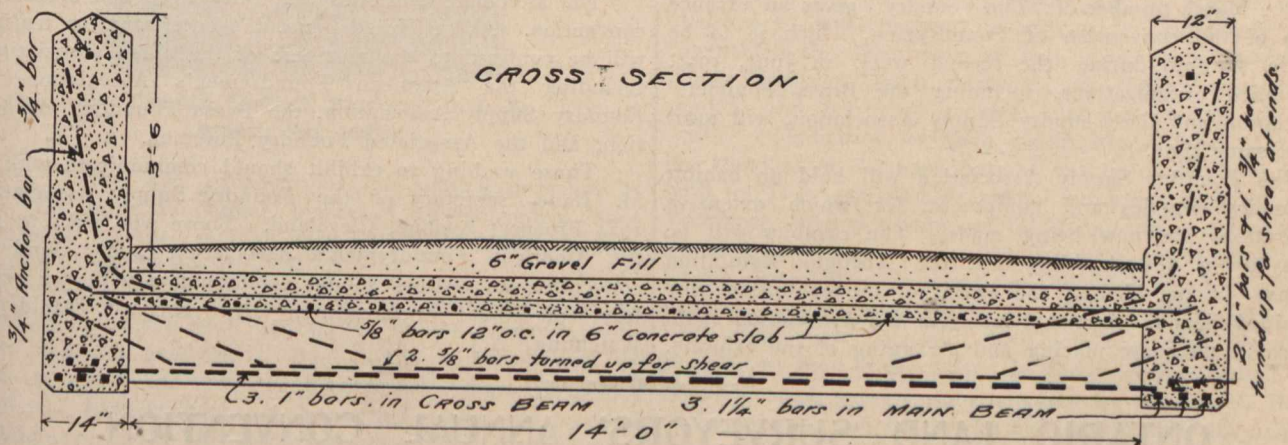 12"
CROSS SECTION
3/4" bar
3/4" Anchor bar
3'-6"
6" Gravel Fill
5/8" bars 12" o.c. in 6" Concrete slab
2. 5/8" bars turned up for shear
3. 1" bars. in CROSS BEAM
3. 1 1/4" bars in MAIN BEAM
2. 1" bars & 1. 3/4" bar
turned up for shear at ends.
14"
14'-0"